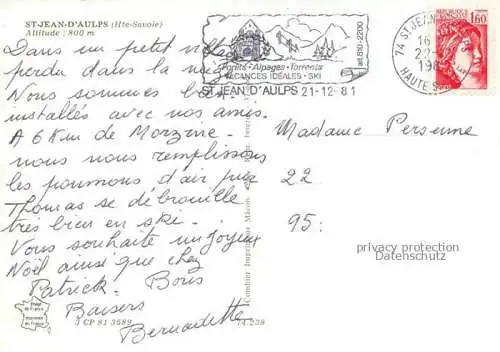 ST-JEAN-D'AULPS (Hte-Savoie)
Altitude : 800 m
Dans un petit
perdu dans la neige
Nous sommes bien
installés avec nos amis.
A 6 Km de Morzine
nous nous remplissons
les poumons d'air pur
Thomas se débrouille
très bien en ski.
Vous souhaite un Joyeux
Noël ainsi que chez
Patrick. Boris
Baisers
Bernadette
Forêts - Alpages - Torrents
VACANCES IDÉALES - SKI
alt. 830-2200
ST JEAN D'AULPS 21-12 81
74 ST JEAN
16
HAUTE
1,60
Madame Personne
22
95:
privacy protection
Datenschutz
Combier Imprimeur Mâcon
3 CP 81 3589
74.238